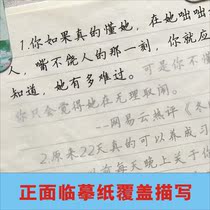 1.你如果真的懂她,在她咄咄
人,嘴不饶人的那一刻,你就应
知道,她有多难过。可是你不懂
你只会觉得她在无理取闹。
——网易云热评《
2.原来22天真的可以养成习
每天晚上关于你
正面临摹纸覆盖描写